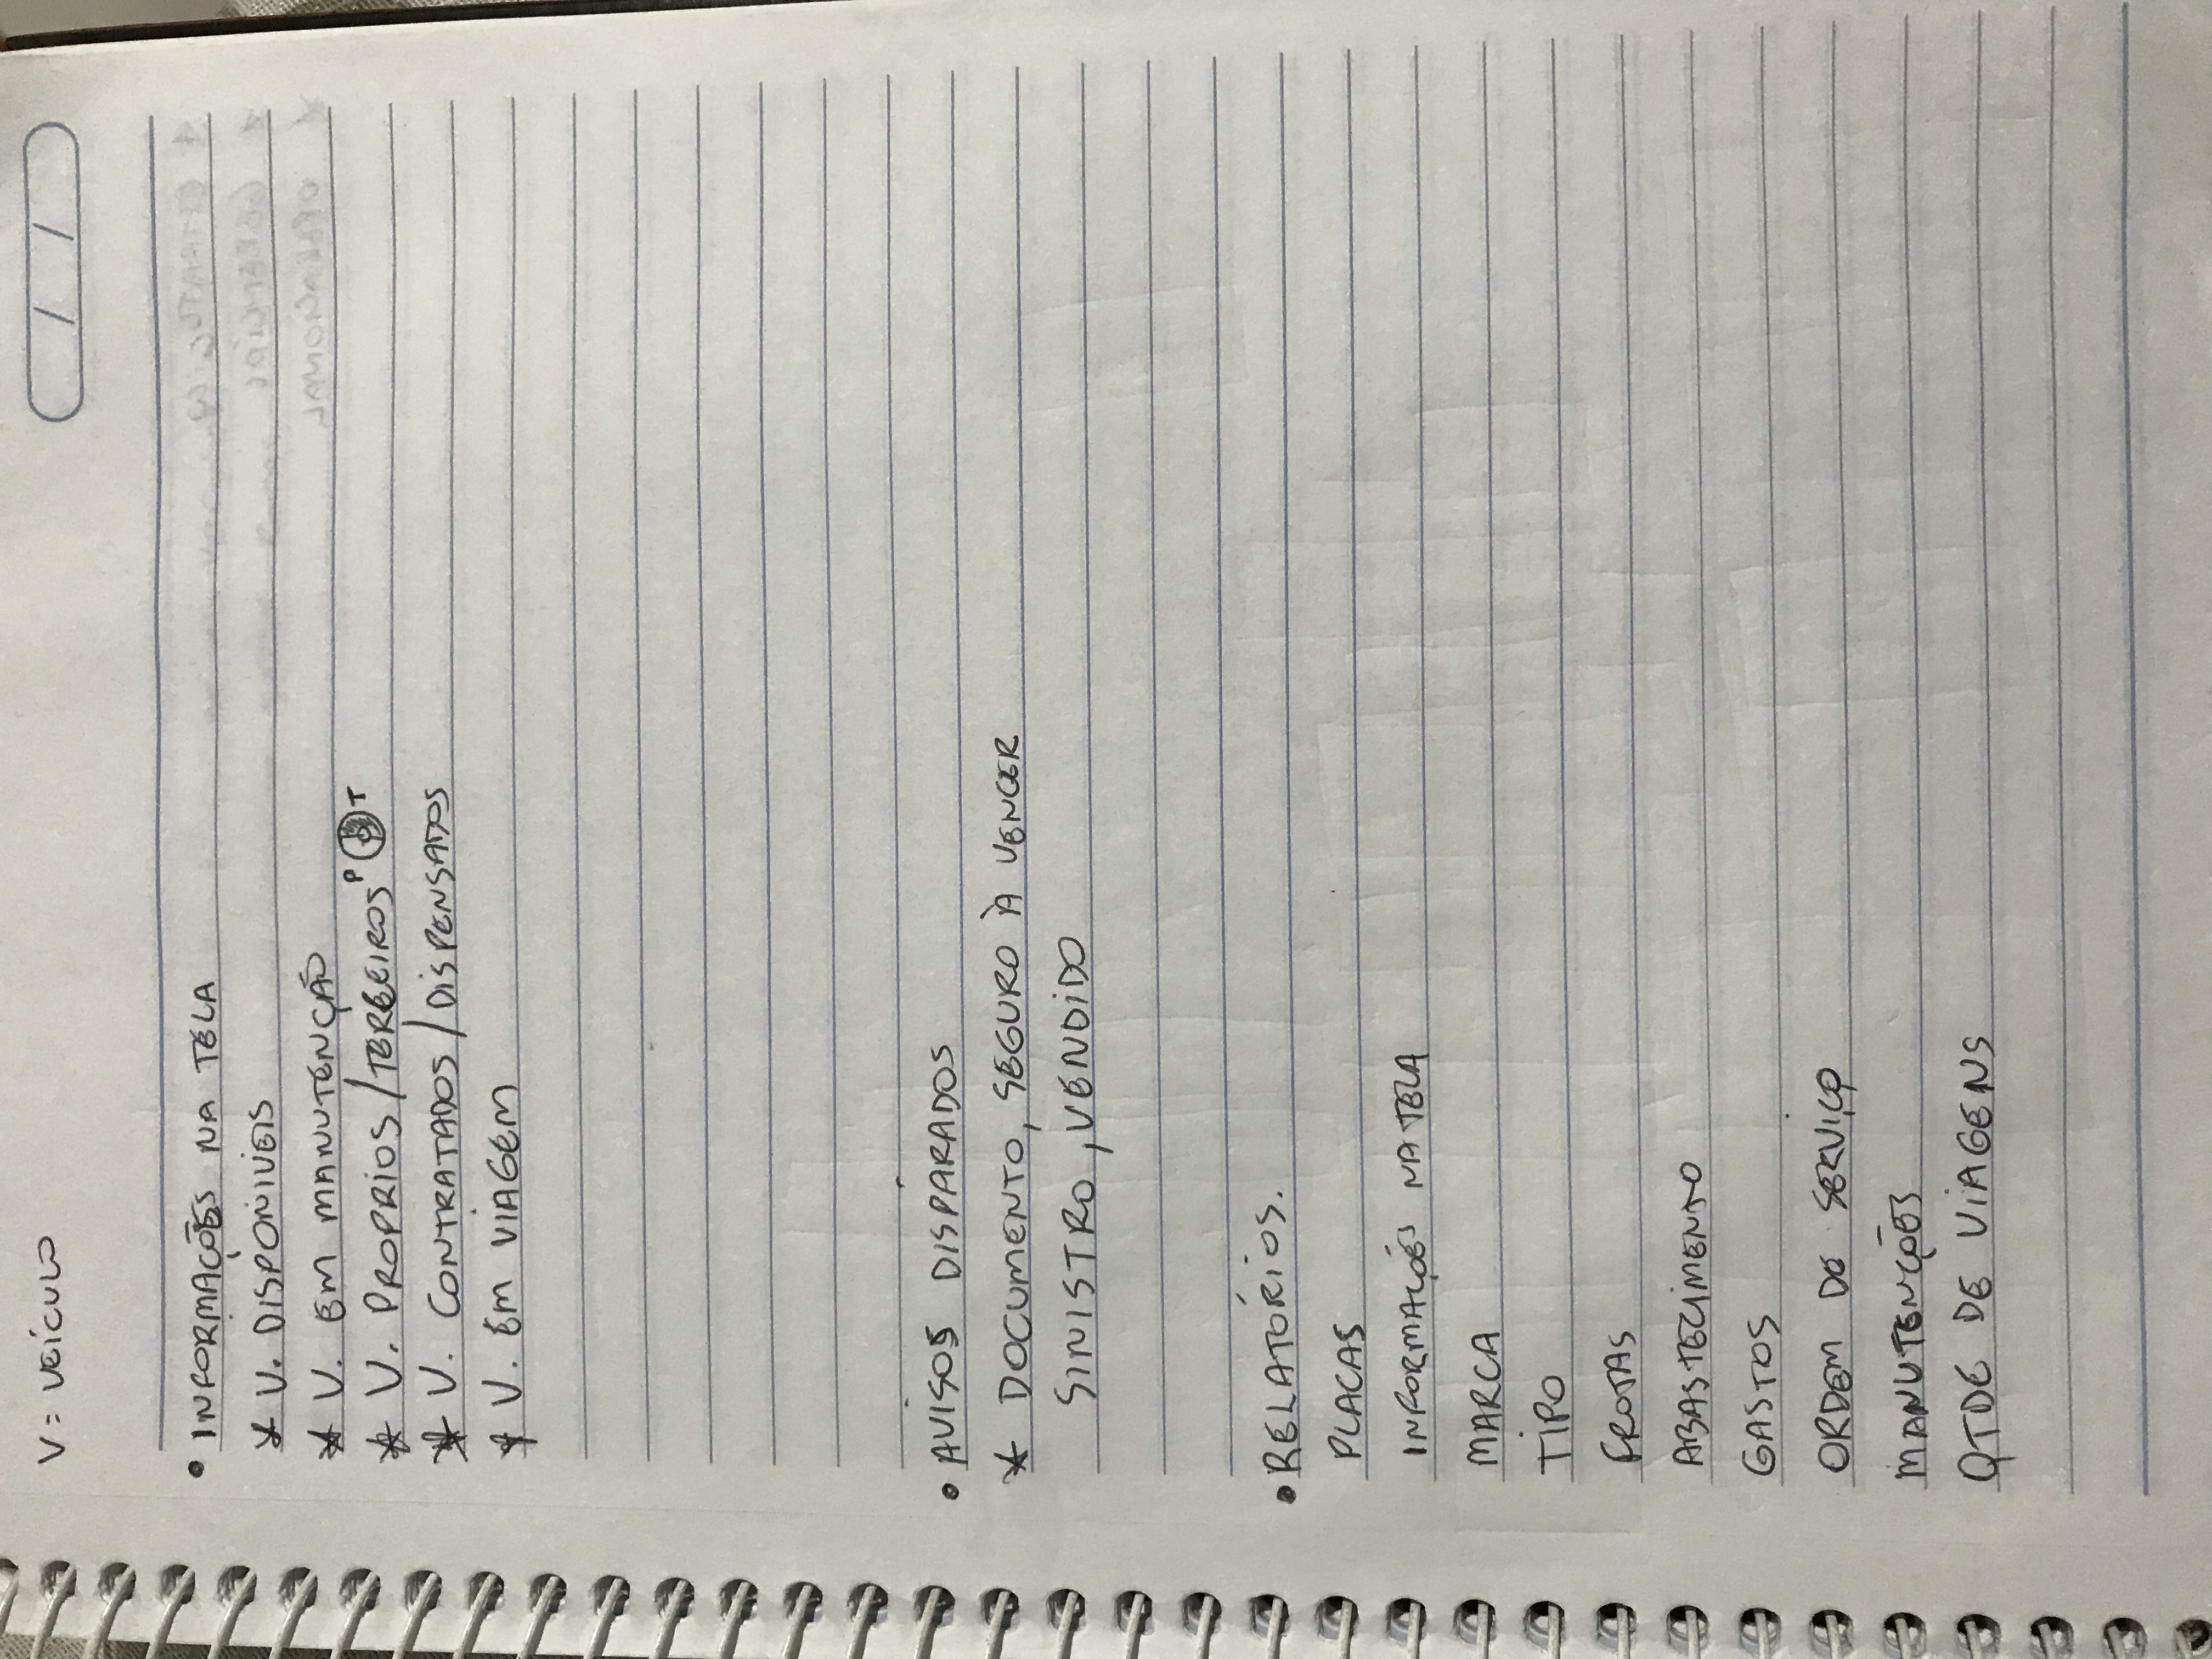 V= VEÍCULO
• INFORMAÇÕES NA TELA
* V. DISPONIVEIS
* V. EM MANUTENÇÃO
* V. PROPRIOS/TERCEIROS P T
* V. CONTRATADOS/DISPENSADOS
* V. EM VIAGEM
• AVISOS DISPARADOS
* DOCUMENTO, SEGURO À VENCER
SINISTRO, VENDIDO
• RELATÓRIOS.
PLACAS
INFORMAÇÕES NA TELA
MARCA
TIPO
FROTAS
ABASTECIMENTO
GASTOS
ORDEM DE SERVIÇO
MANUTENÇÕES
QTDE DE VIAGENS